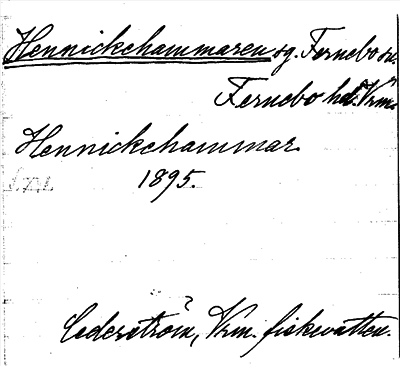 Hennickehammaren sg. Fernebo sn.
Fernebo hd. Vrm.
Hennickehammar
1895.
Cederström, Vrm. fiskevatten.